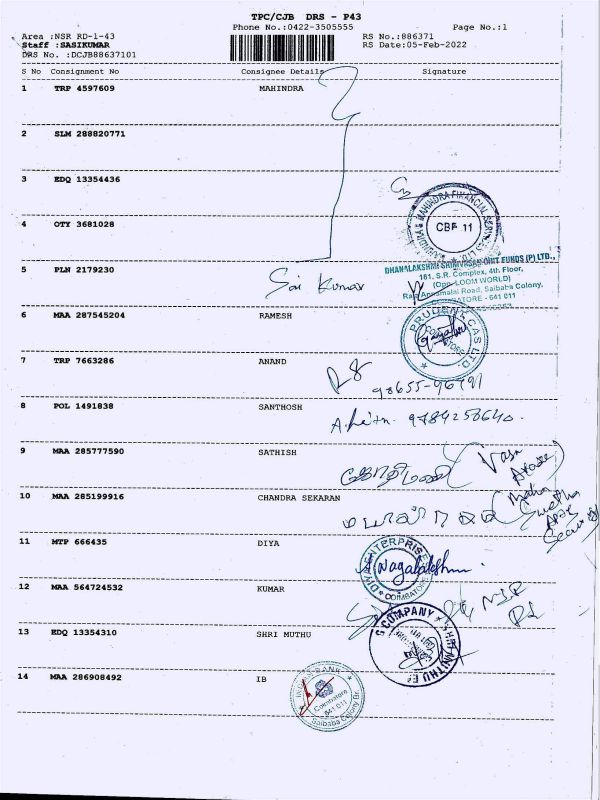 TPC/CJB DRS - P43
Phone No.:0422-3505555
Page No.:1
Area :NSR RD-1-43
RS No.:886371
Staff :SASIKUMAR
RS Date:05-Feb-2022
DRS No. :DCJB88637101
S No Consignment No Consignee Details Signature
1 TRP 4597609 MAHINDRA
2 SLM 288820771
3 EDQ 13354436
MAHINDRA & MAHINDRA FINANCIAL
CBE 11
4 OTY 3681028
DHANALAKSHMI SRIVASAN CHIT FUNDS (P) LTD.,
5 PLN 2179230 Sai Kumar
161, S.R. Complex, 4th Floor,
(Opp. LOOM WORLD)
Raja Annamalai Road, Saibaba Colony,
COIMBATORE - 641 011
6 MAA 287545204 RAMESH
PRUDENT CAS LTD.
7 TRP 7663286 ANAND
98655-96791
8 POL 1491838 SANTHOSH
9784258640.
9 MAA 285777590 SATHISH
ஜோதிமணி
Vasn
10 MAA 285199916 CHANDRA SEKARAN
Maha
Swetha
Apts
Security
11 MTP 666435 DIYA
DIYA ENTERPRISE
COIMBATORE
Nagalakshmi.
12 MAA 564724532 KUMAR
NSR
Rd
13 EDQ 13354310 SHRI MUTHU
& COMPANY * SHRI MUTHU
14 MAA 286908492 IB
INDIAN BANK
Coimbatore
641 011
Saibaba Colony Br.